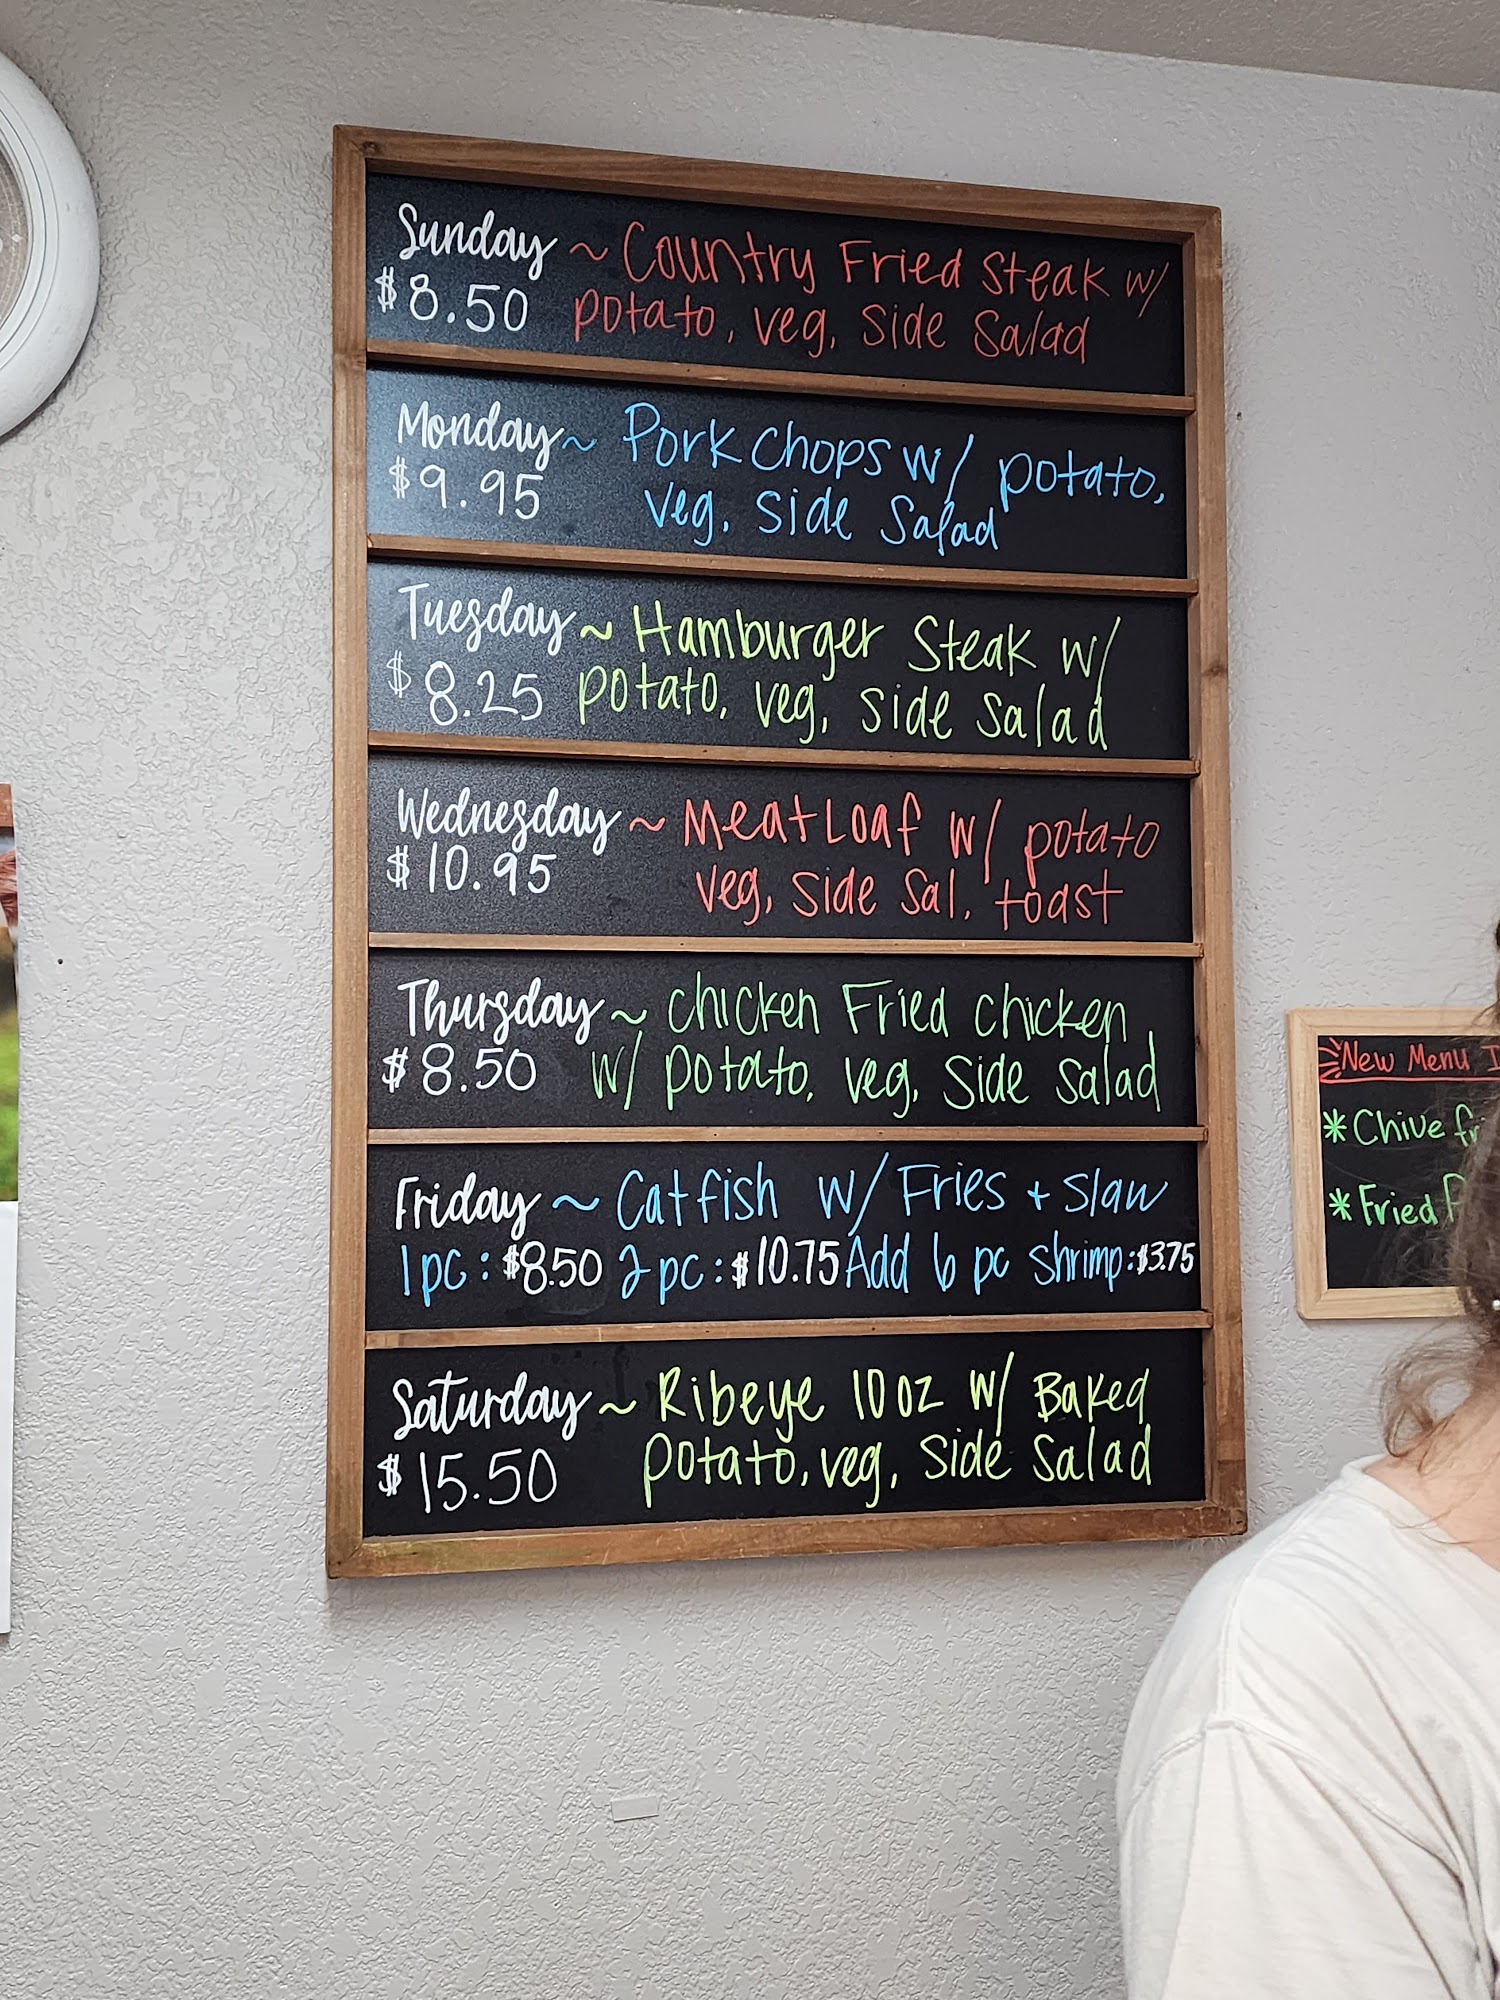 Sunday ~ Country Fried Steak w/
$8.50 potato, veg, side salad
Monday ~ Pork Chops w/ potato,
$9.95 veg, side salad
Tuesday ~ Hamburger Steak w/
$8.25 potato, veg, side salad
Wednesday ~ Meatloaf w/ potato
$10.95 veg, side sal, toast
Thursday ~ chicken Fried chicken
$8.50 w/ potato, veg, side salad
Friday ~ Catfish w/ Fries + slaw
1 pc: $8.50 2 pc: $10.75 Add 6 pc shrimp: $3.75
Saturday ~ Ribeye 10 oz w/ Baked
$15.50 potato, veg, side salad
New Menu
* Chive
* Fried